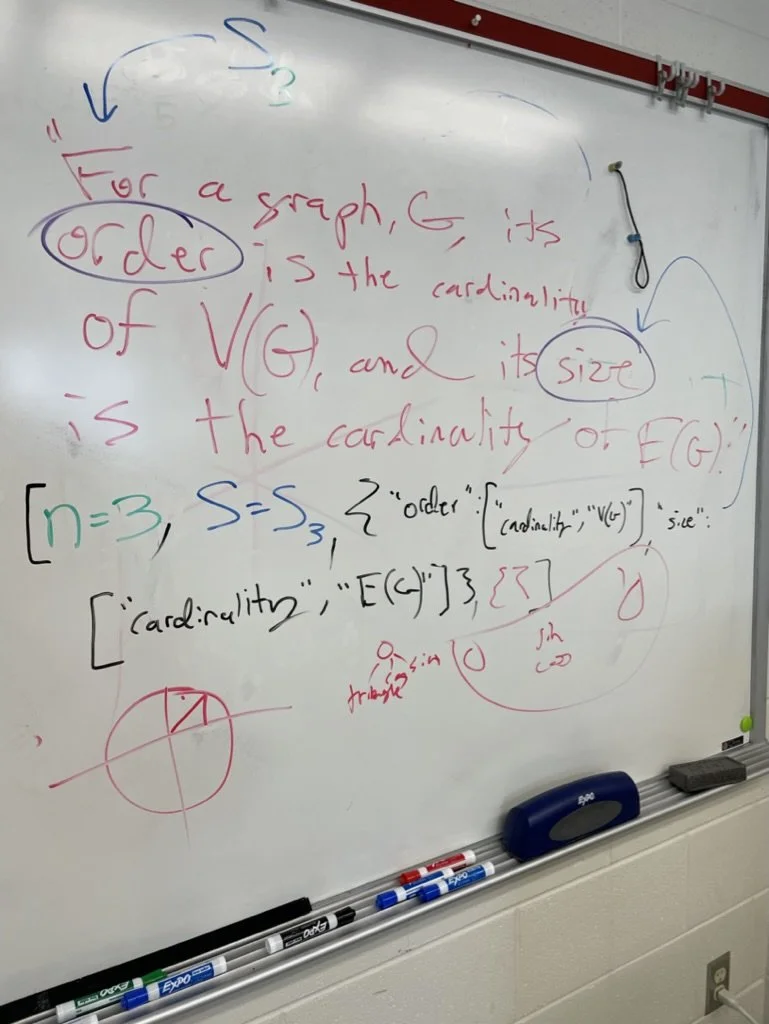 S3
"For a graph, G, its
order is the cardinality
of V(G), and its size
is the cardinality of E(G)."
[n=3, S=S3, {"order":["cardinality","V(G)"], "size":
["cardinality","E(G)"]}, {}]
sin
cos
triangle
sin
EXPO
EXPO
EXPO
EXPO
EXPO